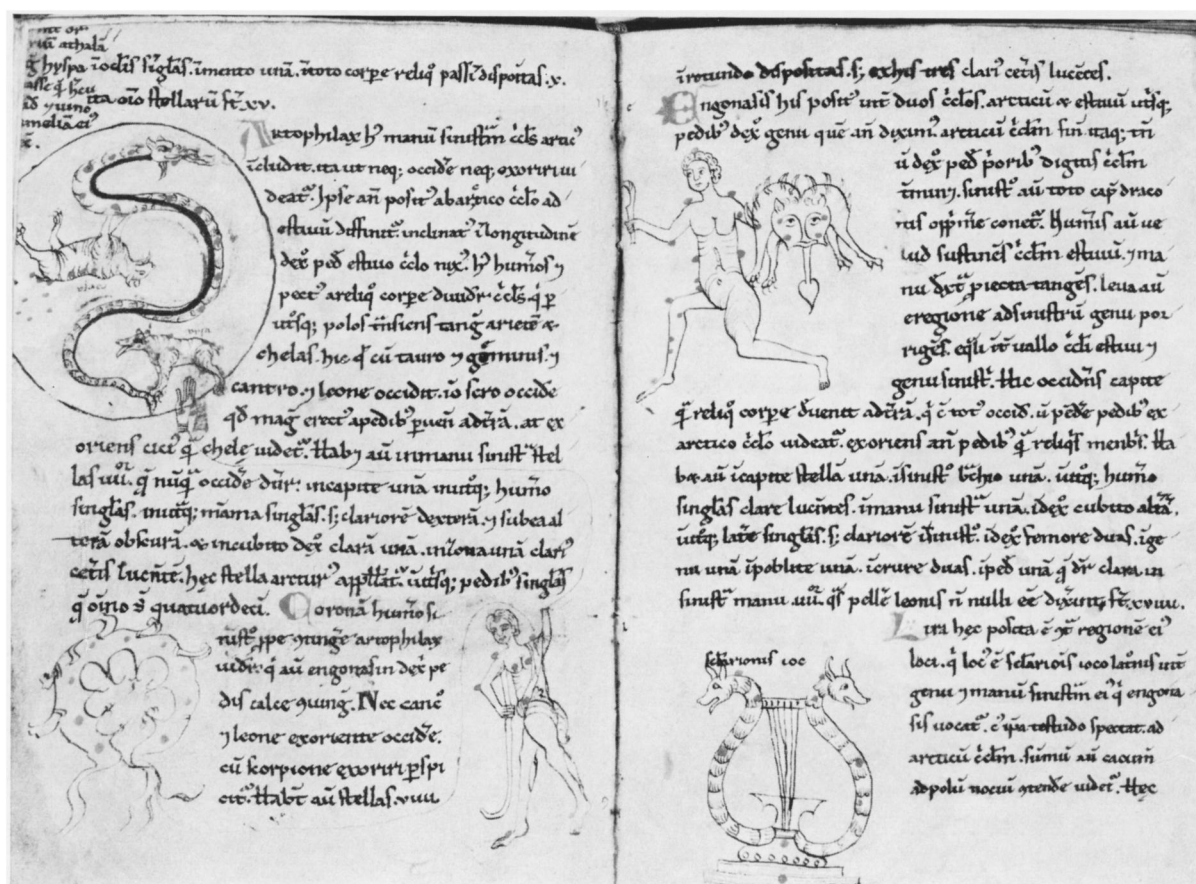 hyspa. i oclis sigłas. i mento unā. i toto corpe reliq̊ passī dispoitas. x.
ita oīo stellarū st̄. xv.
Artophilax hꝰ manū sinistrā ccls̄ artic̄
includit. ita ut neq; occidē neq; exoriri ui
deat̄. Ipse aū posit̄ ab artico cclo ad
estiuū diffinit̄. inclinat̄ i longitudinē
dex̄ pede estiuo cclo nix̄. hꝰ humos ⁊
pect̄ a reliq̊ corpe diuidr̄. ccls̄ q̊ p
utsq; polos tn̄siens tanḡ arietē ⁊
chelas. hic q̊ cū tauro ⁊ geminis ⁊
cancro. ⁊ leone occidit. iō sero occidē
qd̄ maḡ erect̄ a pedib; puen̄ ad tr̄ā. at ex
oriens citi̇ꝰ q̄ chele uidet̄. Habz aū in manu sinist̄ stel
las iiii. q̄ nūq̄ occidē dn̄r. in capite unā. in utq; humo
singlas. in utq; māma singlas. s; clariorē dexterā. ⁊ sub ea al
terā obscurā. & in cubito dex̄ clarā unā. in zona unā clariꝰ
cetis lucentē. hec stella arctur̄ appllat̄. in utsq; pedib; singlas
q̄ oīno st̄ quatuordeci. Coronā humo si
nist̄ ppe ⁊tinge artophilax
uidr̄. q̄ aū engonasin dex̄ pe
dis calce ⁊iung. Nec canc̄
⁊ leone exoriente occidē.
cū scorpione exoriri pspi
cit̄. Habt̄ aū stellas. viiii
i rotundo dispositas. s; ex his tres clariꝰ cetis lucētes.
Engonasis hic posit̄ int̄ duos cclos. arcticū & estiuū utsq;
pedib; dex̄ genu quē an̄ diximꝰ. arcticū cclm̄ finit. itaq; tn̄
ū dex̄ pedꝰ p̄orib; digitis cclm̄
t̄minz. sinist̄ aū toto cap̄ draco
nis opp̄m̄e conet̄. Humis aū ue
lud sustinēs cclm̄ estiuū. ⁊ ma
nu dext̄ p̄iecta tangēs. leua aū
e regione ad sinistrū genu por
rigēs. eq̄li int̄uallo ccli estiui ⁊
genu sinist̄. Hic occidēs capite
q̄ reliq̊ corpe deuenit ad tr̄ā. q̄ c̄ tot̄ occid. ū pēde pedib; ex
arctico cclo uideat̄. exoriens aū pedib; q̄ reliq̊s menbr̄s. Ha
bz aū i capite stellā unā. i sinist̄ bchio unā. i utq; humo
singlas clare lucētes. i manu sinist̄ unā. i dex̄ cubito alt̄ā.
i utq; late singlas. s; clariorē i sinist̄. i dex̄ femore duas. i ge
nu unā. i poplite unā. i crure duas. i pedꝰ unā q̄ dr̄ clara. in
sinist̄ manu. iiii. q̄s pellē leonis n̄ nulli ēē dixer̄t. st̄. xviiii.
Lira hec posita c̄ ⁊t̄ regionē eiꝰ
loci. q̄ locꝰ ē sclariois ioco latoniis int̄
genu ⁊ manū sinistrā eiꝰ q̄ engona
sclarionis ioc
sis uocat̄. c̄ ipa testudo spectat ad
arcticū cclm̄. sūmū aū cacum̄
ad polū nociū ⁊tendē uidet̄. Hec